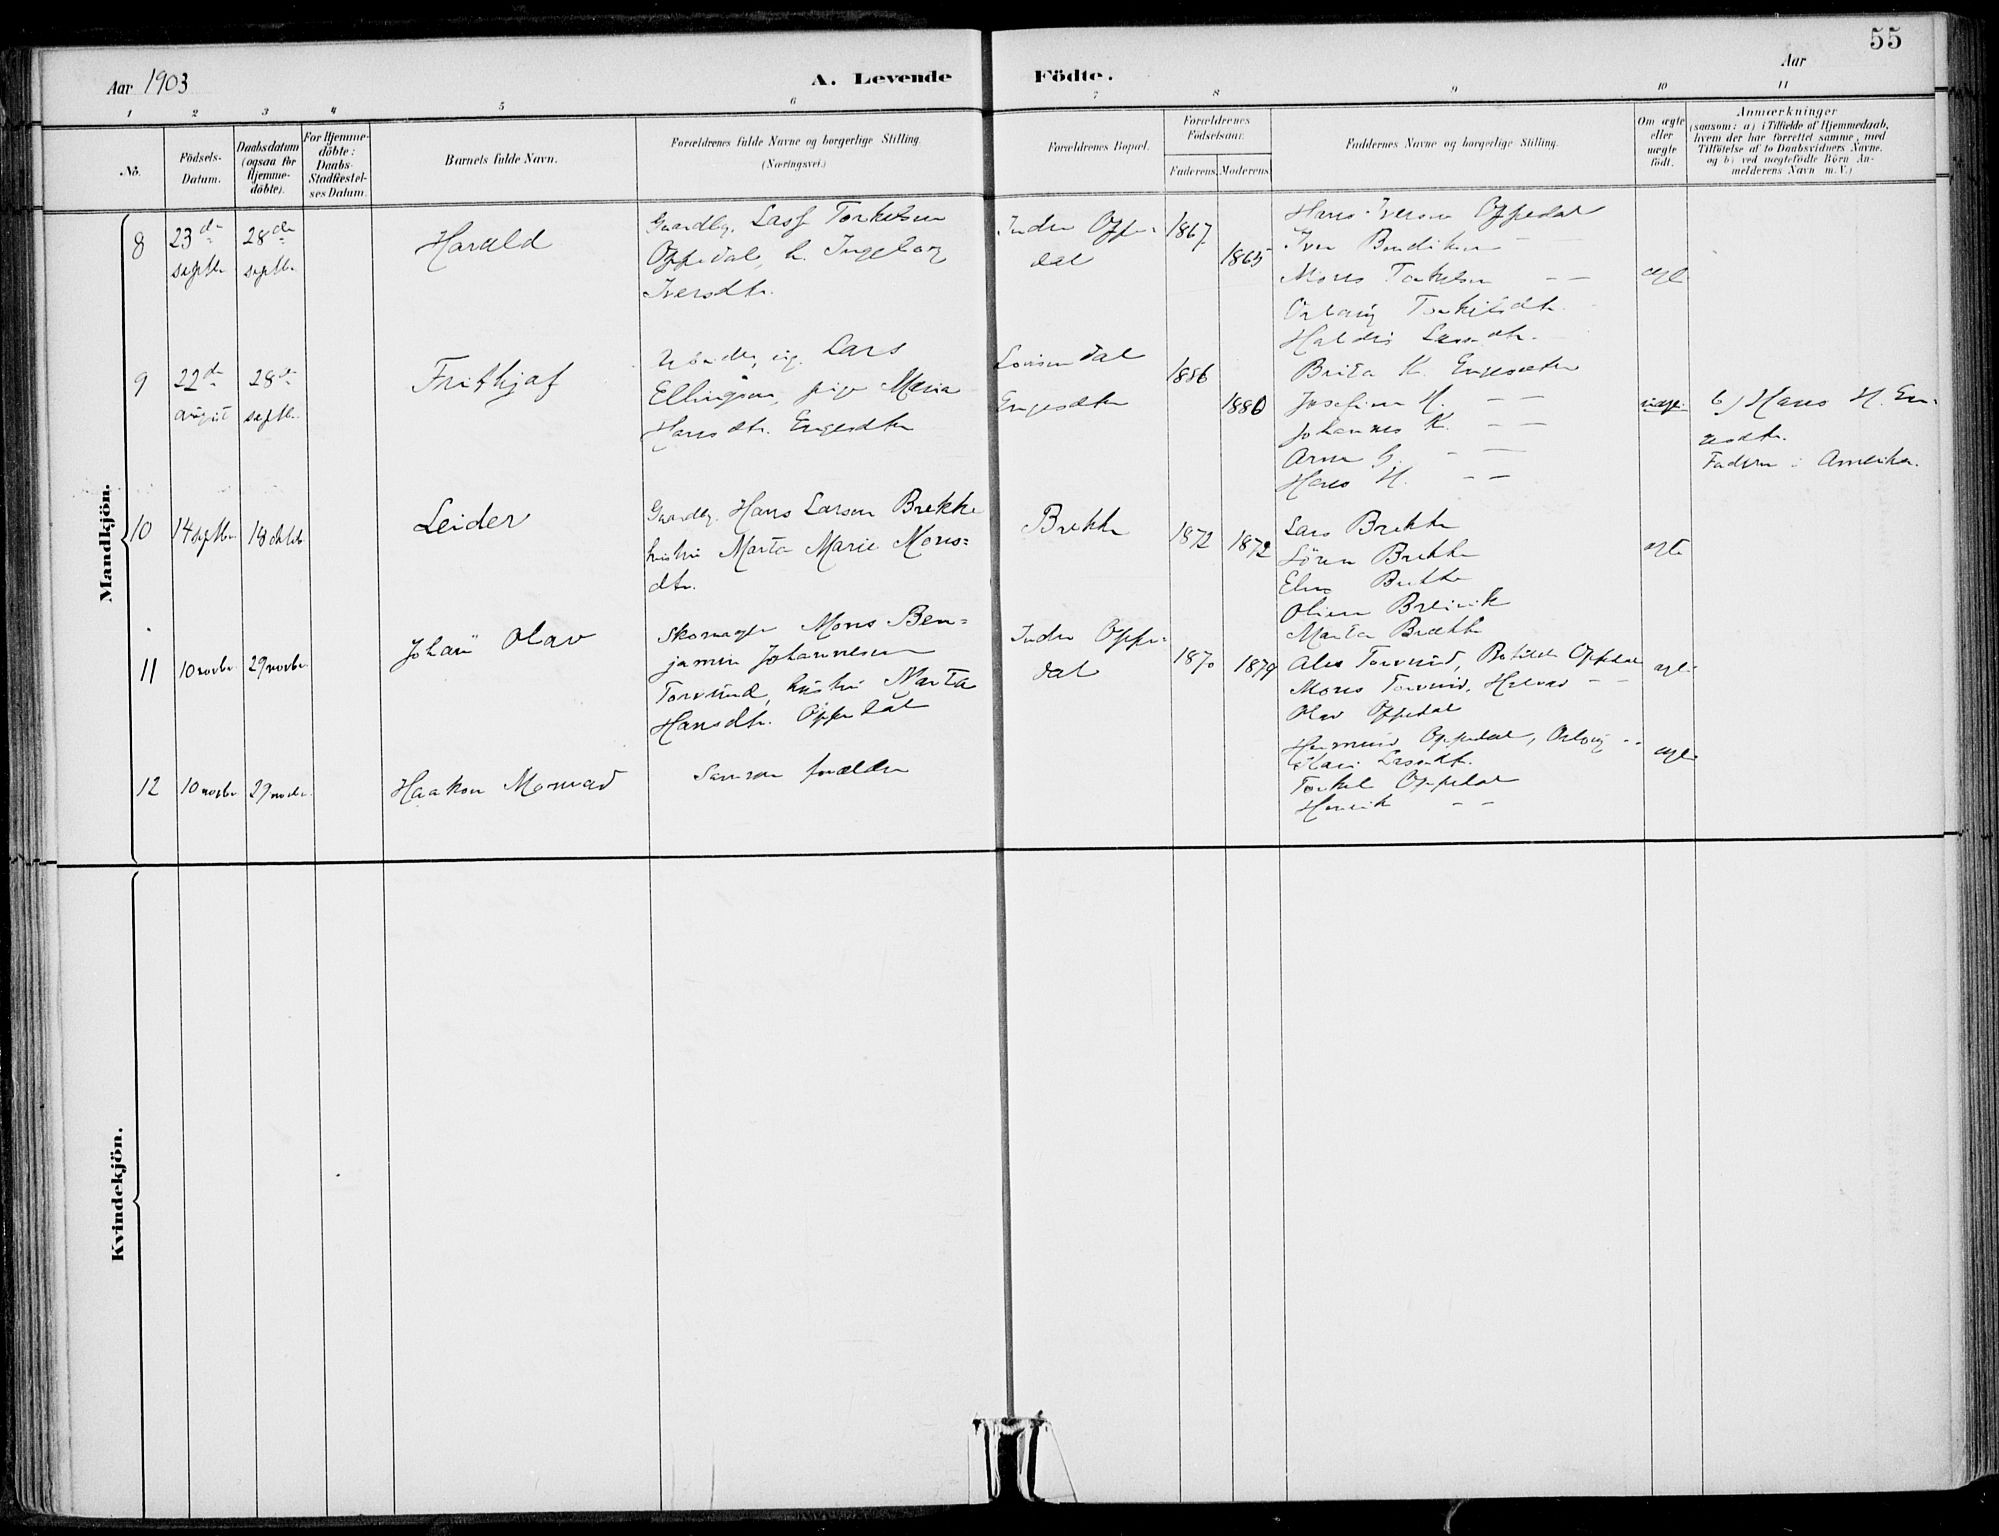 55
Aar 1903
A. Levende Födte.
Aar
1 2 3 4 5 6 7 8 9 10 11
No.
Födsels-
Datum.
Daabsdatum
(ogsaa for
Hjemme-
döbte).
For Hjemme-
döbte:
Daabs-
Stadfæstel-
ses Datum.
Barnets fulde Navn.
Forældrenes fulde Navne og borgerlige Stilling.
(Næringsvei.)
Forældrenes Bopæl.
Forældrenes
Födselsaar.
Faderens. Moderens.
Faddernes Navne og borgerlige Stilling.
Om ægte
eller
uægte
født.
Anmærkninger
(saasom: a) i Tilfælde af Hjemmedaab,
hvem der har forrettet samme, med
Tilføielse af to Daabsvidners Navne,
og b) ved uægtefødte Börn An-
melderens Navn m.V.)
Mandkjön.
8
23de
septbr
28de
septbr
Harald
Gaardbr. Lasse Torkelsen
Oppedal, h. Ingeborg
Iversdtr.
Indre Oppe-
dal
1867
1865
Hans Iversen Oppedal
Iver Bendiksen —
Mons Torkelsen — —
Torkilsdtr.
Haldis
9
22de
august
28de
septbr.
Frithjof
Lars
Ellingsen, pige Maria
Hansdtr. Engesæter
Engesæter
1886
1880
Brita K. Engesæter
Josefine H. — —
Johannes K. — —
Arne G. — —
Hans H. — —
b) Hans H. En-
Faderen i Amerika.
10
14 septbr
18 oktob
Leider
Gaardbr. Hans Larsen Brekke
hustru Marta Marie Mons-
dtr.
Brekke
1872
1872
Lars Brekke
Sören Brekke
Brekke
Oline Breivik
Marta Brekke
ægte
11
10 novbr.
29 novbr.
Johan Olav
Skomager Mons Ben-
jamin Johannesen
Torvund, hustru Marta
Hansdtr. Oppedal
Indre Oppe-
dal
1870
1879
Torvund, Oppedal
Mons Torvund, — —
Olav Oppedal
12
10 novbr
29 novbr.
Haakon Monrad
Samme forældre
Oppedal,
Torkel Oppedal
Henrik — —
Kvindekjön.